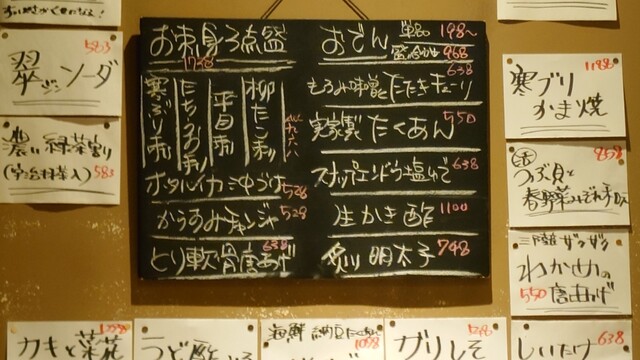 翠ジンソーダ 583
濃い緑茶割り
(宇治抹茶入) 583
お刺身5点盛
寒ぶり刺
たちうお刺
平目刺
柳たこ刺
各九六八
ホタルイカ沖づけ 528
からすみチャンジャ 528
とり軟骨唐あげ 638
おでん 単品 198~
盛合せ 968
もろみ味噌とたたきキューリ 638
実家製たくあん 550
スナップエンドウ塩ゆで 638
生かき酢 1100
炙り明太子 748
寒ブリ
かま焼 1188
つぶ貝と 858
春野菜
三陸産 ザクザク
わかめの
550 唐あげ
カキと菜花
うど酢
海鮮納豆
ガリしそ
しいたけ 638